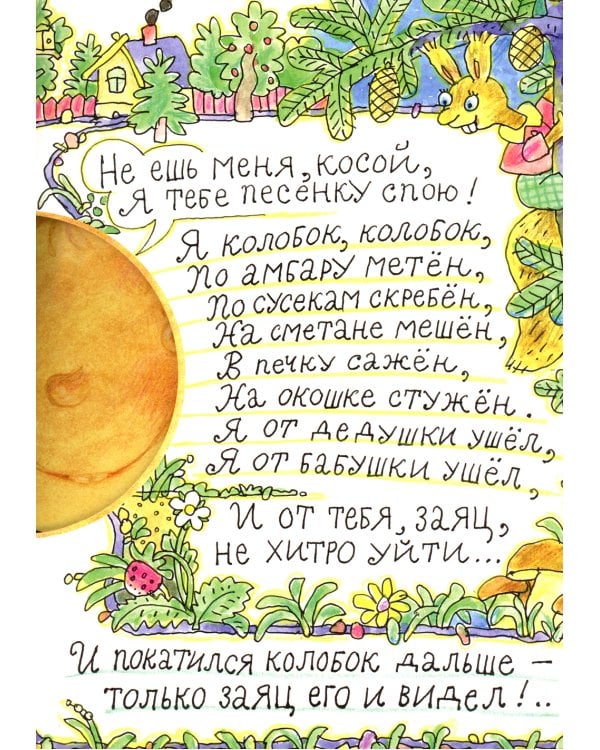 Не ешь меня, косой,
Я тебе песенку спою!
Я колобок, колобок,
По амбару метён,
По сусекам скребён,
На сметане мешён,
В печку сажён,
На окошке стужён.
Я от дедушки ушёл,
Я от бабушки ушёл,
И от тебя, заяц,
не хитро уйти...
И покатился колобок дальше –
только заяц его и видел!..